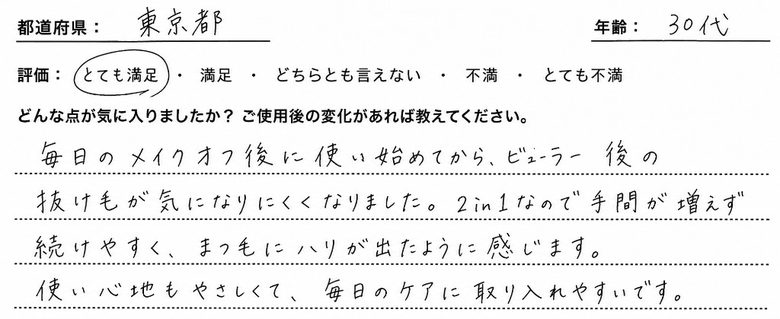 都道府県： 東京都 年齢： 30代
評価： とても満足 ・ 満足 ・ どちらとも言えない ・ 不満 ・ とても不満
どんな点が気に入りましたか？ ご使用後の変化があれば教えてください。
毎日のメイクオフ後に使い始めてから、ビューラー後の
抜け毛が気になりにくくなりました。2in1なので手間が増えず
続けやすく、まつ毛にハリが出たように感じます。
使い心地もやさしくて、毎日のケアに取り入れやすいです。